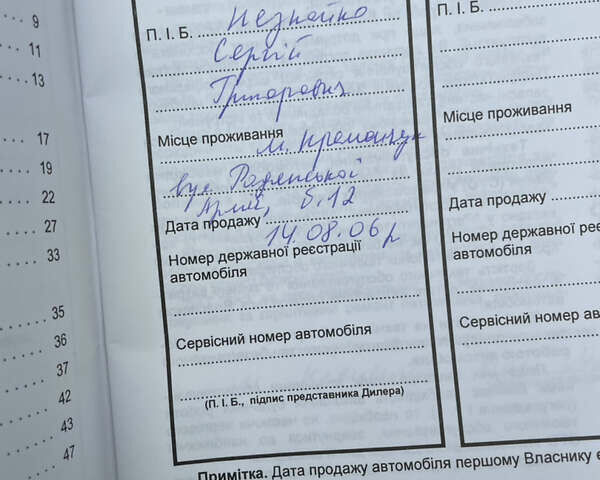 9
11
13
17
19
22
27
33
35
36
37
42
43
47
П. І. Б. Незнайко
Сергій
Григорович
Місце проживання
м. Кременчук
вул Радянської
Армії, б. 12
Дата продажу
14.08.06р
Номер державної реєстрації
автомобіля
Сервісний номер автомобіля
(П. І. Б., підпис представника Дилера)
П. І. Б.
Місце прожива
Дата продажу
Номер державної рее
автомобіля
Сервісний номер ав
Примітка. Дата продажу автомобіля першому Власнику є